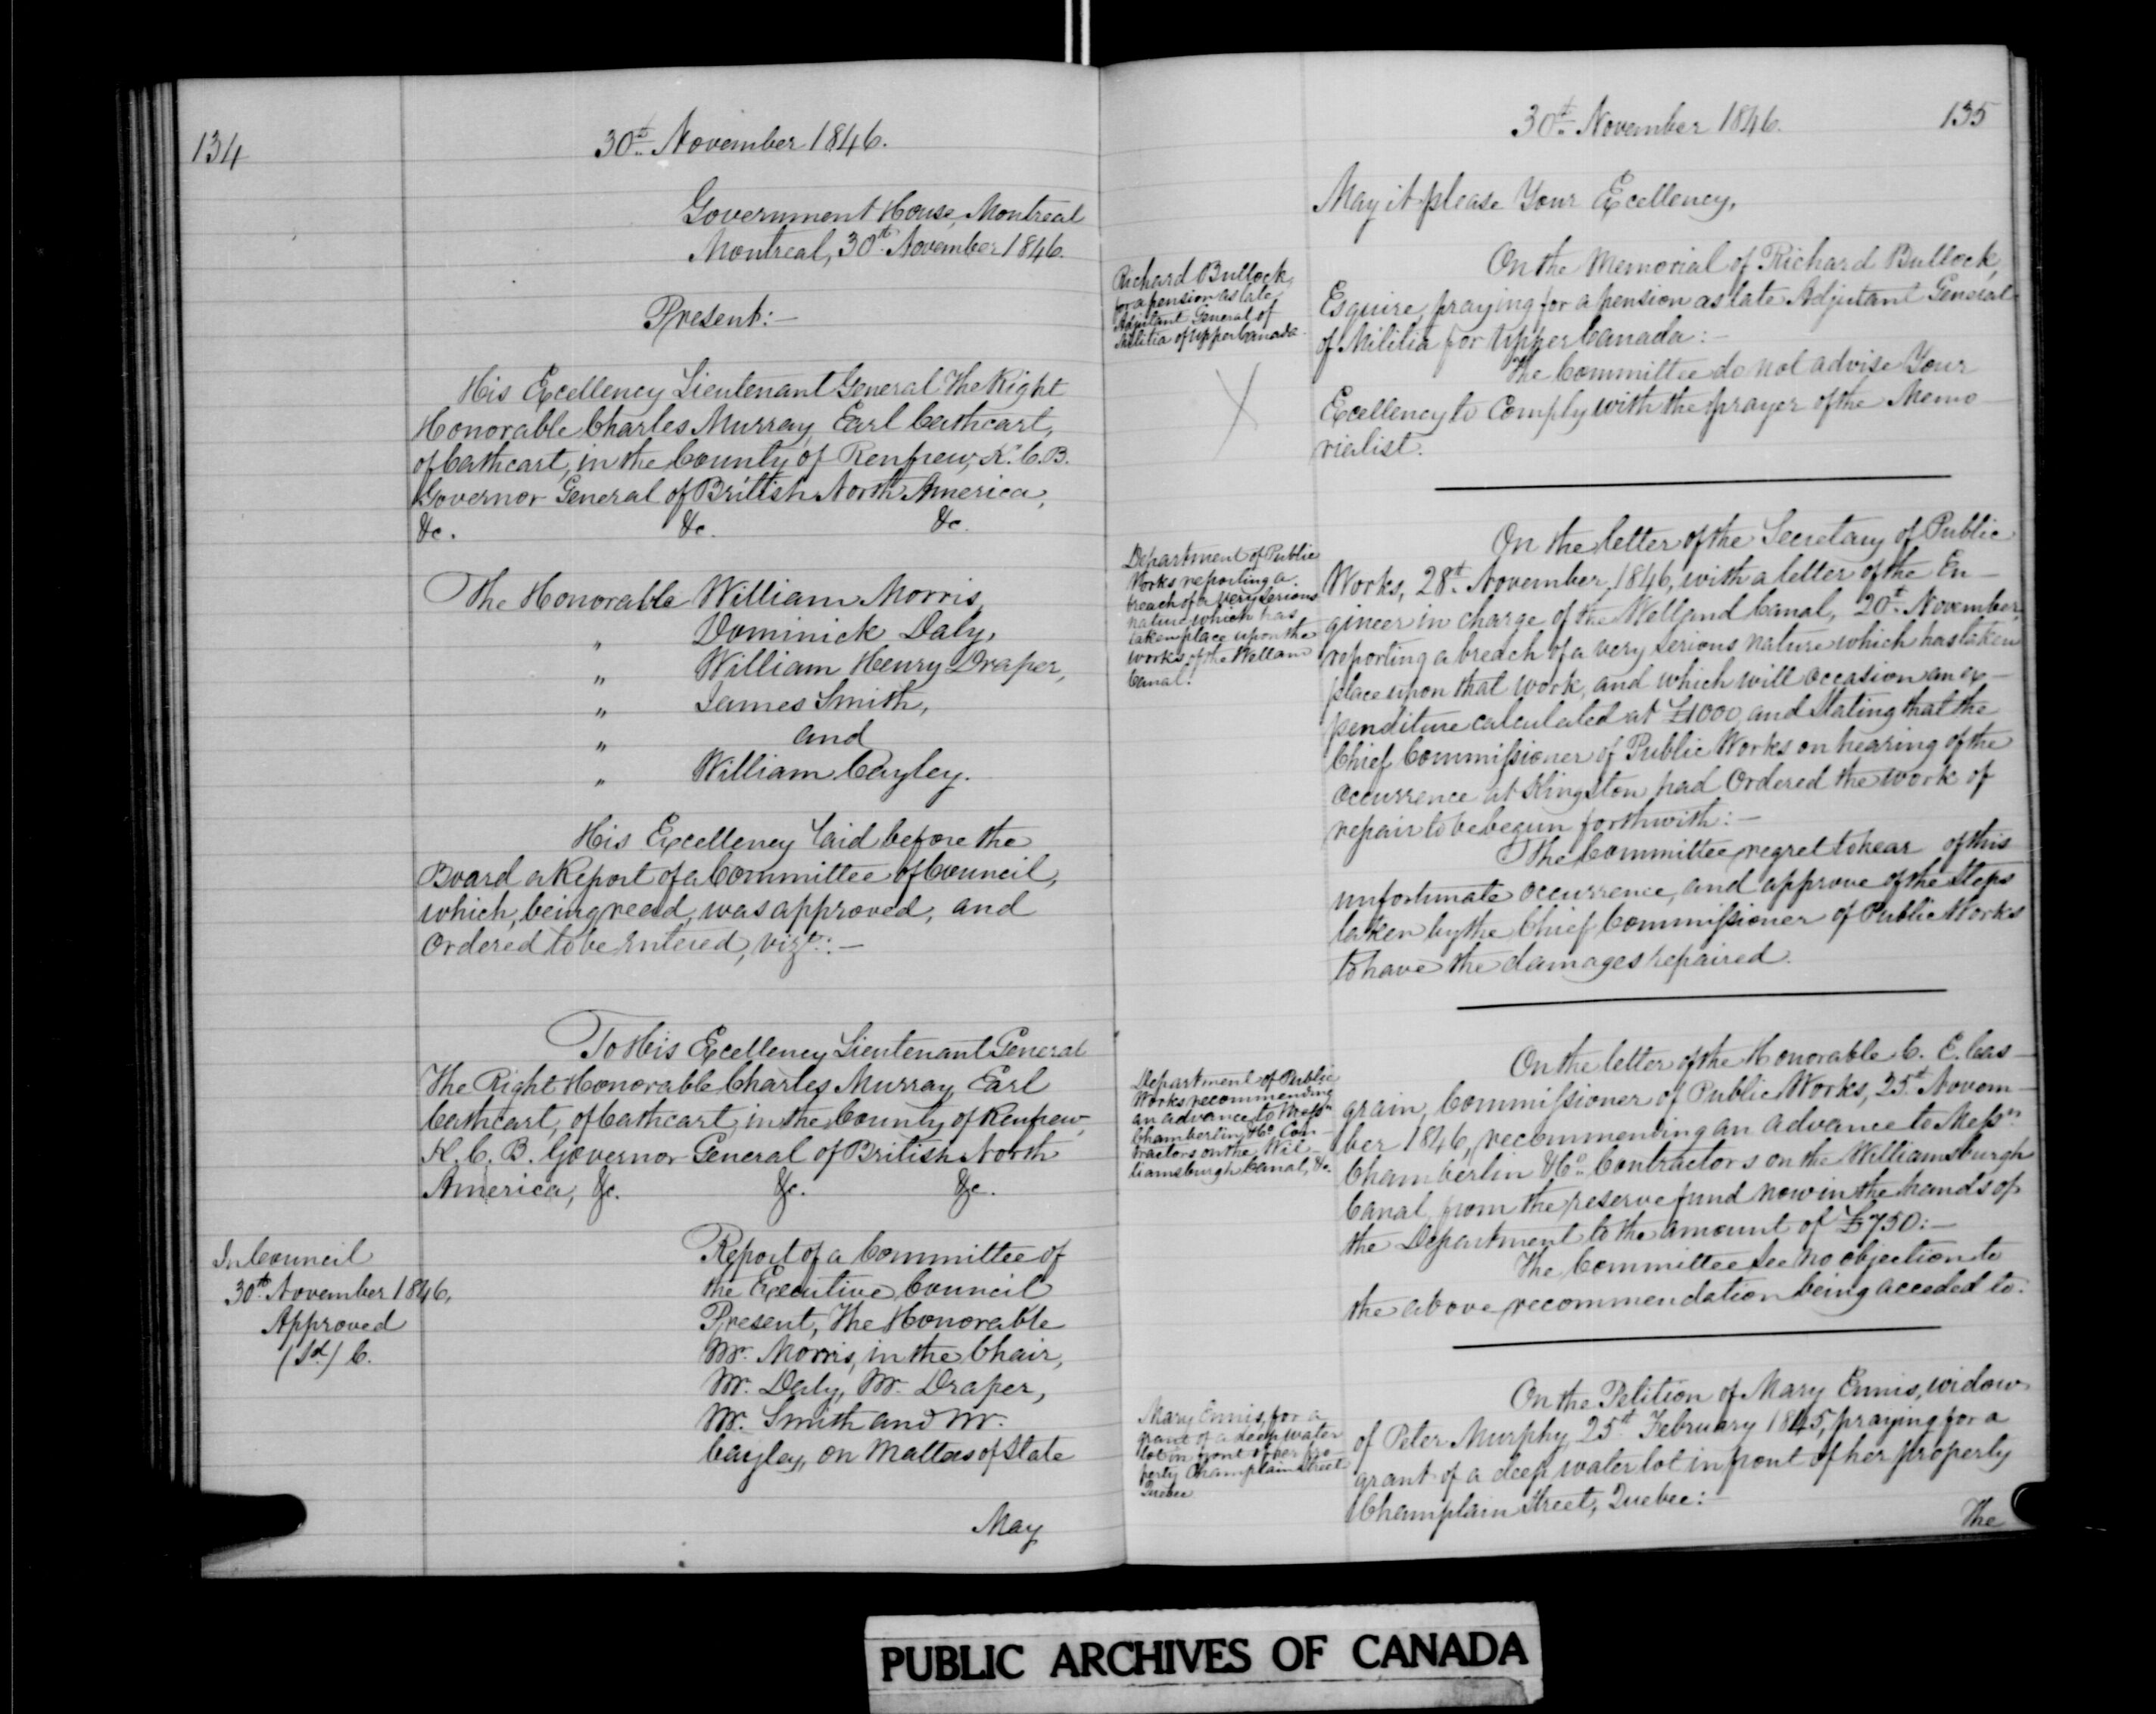 134
30th November 1846.
Government House, Montreal
Montreal, 30th November 1846.
Present:—
His Excellency Lieutenant General The Right
Honorable Charles Murray, Earl Cathcart,
of Cathcart, in the County of Renfrew, K.C.B.
Governor General of British North America,
&c. &c. &c.
The Honorable William Morris,
" Dominick Daly,
" William Henry Draper,
" James Smith,
" and
" William Cayley.
His Excellency laid before the
Board a Report of a Committee of Council,
which, being read, was approved, and
Ordered to be entered, vizt:—
To His Excellency Lieutenant General
The Right Honorable Charles Murray, Earl
Cathcart, of Cathcart, in the County of Renfrew,
K.C.B. Governor General of British North
America, &c. &c. &c.
In Council
30th November 1846,
Approved
(Sd.) C.
Report of a Committee of
the Executive Council
Present, The Honorable
Mr. Morris, in the Chair,
Mr. Daly, Mr. Draper,
Mr. Smith and Mr.
Cayley, on Matters of State
May
30th November 1846. 135
May it please Your Excellency,
Richard Bullock,
for a pension as late
Adjutant General of
Militia of Upper Canada
On the Memorial of Richard Bullock,
Esquire, praying for a pension as late Adjutant General
of Militia for Upper Canada:—
The Committee do not advise Your
Excellency to Comply with the prayer of the Memo-
rialist.
Department of Public
Works reporting a
breach of a very serious
nature which has
taken place upon the
works of the Welland
Canal.
On the letter of the Secretary of Public
Works, 28th November, 1846, with a letter of the En-
gineer in charge of the Welland Canal, 20th November,
reporting a breach of a very serious nature which has taken
place upon that work, and which will occasion an ex-
penditure calculated at £1000, and Stating that the
Chief Commissioner of Public Works on hearing of the
occurrence at Kingston had Ordered the work of
repair to be begun forthwith:—
The Committee regret to hear of this
unfortunate occurrence, and approve of the Steps
taken by the Chief Commissioner of Public Works
to have the damages repaired.
Department of Public
Works recommending
an advance to Messrs
Chamberlin & Co. Con-
tractors on the Wil-
liamsburgh Canal, &c.
On the letter of the Honorable C. E. Cas-
grain, Commissioner of Public Works, 25th Novem-
ber 1846, recommending an advance to Messrs
Chamberlin & Co. Contractors on the Williamsburgh
Canal, from the reserve fund now in the hands of
the Department to the amount of £750:—
The Committee see no objection to
the above recommendation being acceded to.
Mary Ennis, for a
grant of a deep water
lot in front of her pro-
perty Champlain Street
Quebec
On the Petition of Mary Ennis, widow
of Peter Murphy, 25th February 1845, praying for a
grant of a deep water lot in front of her property
Champlain Street, Quebec:—
The
PUBLIC ARCHIVES OF CANADA